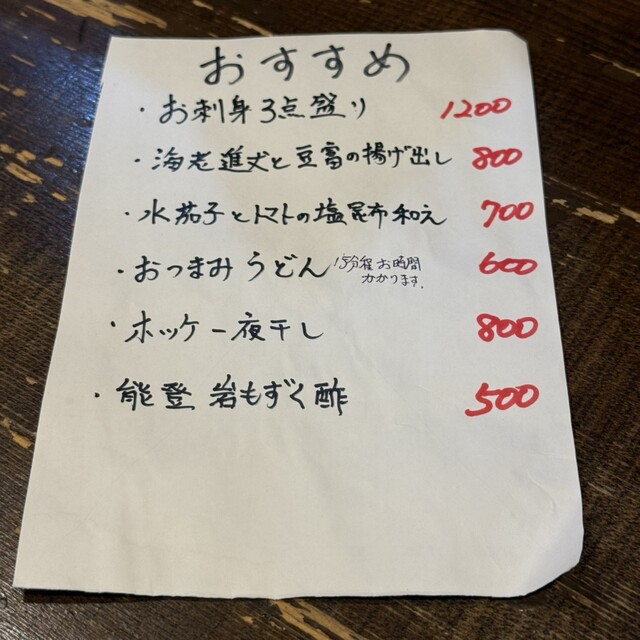 おすすめ
・お刺身3点盛り 1200
・海老進丈と豆富の揚げ出し 800
・水茄子とトマトの塩昆布和え 700
・おつまみうどん 15分程お時間かかります。 600
・ホッケ一夜干し 800
・能登 岩もずく酢 500